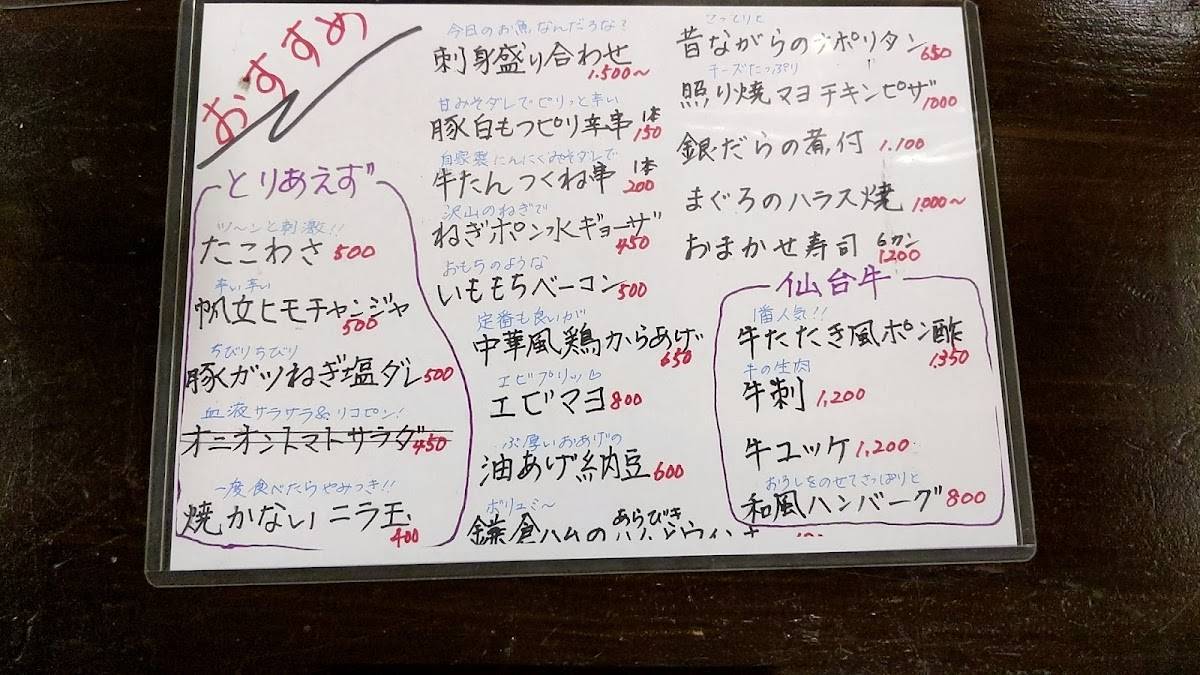 おすすめ
とりあえず
ツ〜ンと刺激!!
たこわさ 500
辛い辛い
帆立ヒモチャンジャ
500
ちびりちびり
豚ガツねぎ塩ダレ 500
血液サラサラ&リコピン!
オニオントマトサラダ 450
一度食べたらやみつき!!
焼かないニラ玉
400
今日のお魚なんだろな?
刺身盛り合わせ
1.500〜
甘みそダレでピリっと辛い
豚白もつピリ辛串 1本
150
自家製にんにくみそダレで
牛たんつくね串 1本
200
沢山のねぎで
ねぎポン水ギョーザ
450
おもちのような
いももちベーコン 500
定番も良いが
中華風鶏からあげ
650
エビプリッ♡
エビマヨ 800
ぶ厚いおあげの
油あげ納豆 600
ボリュミ〜
鎌倉ハムの あらびき
こってりと
昔ながらのナポリタン 650
チーズたっぷり
照り焼マヨチキンピザ 1000
銀だらの煮付 1.100
まぐろのハラス焼 1.000〜
おまかせ寿司 6カン
1.200
仙台牛
1番人気!!
牛たたき風ポン酢
1.350
牛の生肉
牛刺 1,200
牛ユッケ 1,200
おろしをのせてさっぱりと
和風ハンバーグ 800